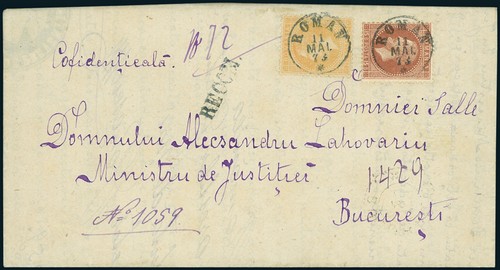 Cofidențicală.
No 72
RECOM.
ROMAN
11
MAI.
73
ROMAN
11
MAI.
73
Domniei Salle
Domnului Alecsandru Lahovariu
Ministru de Justiției
1429
No 1059
București